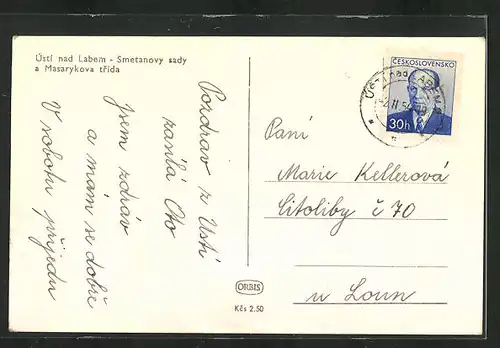 Ústí nad Labem - Smetanovy sady
a Masarykova třída
Pozdrav z Ústí
zasílá Oto
jsem zdráv
a mám se dobře
V sobotu přijedu
ČESKOSLOVENSKO
30h
Ústí nad
Paní
Marie Kellerová
Citoliby č 70
u Loun
ORBIS
Kčs 2.50